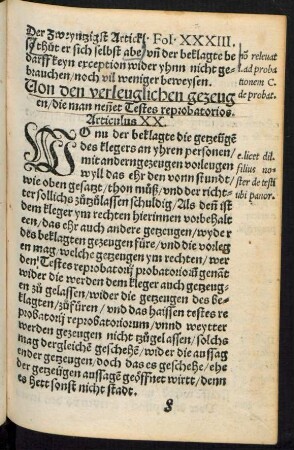 Der Zweyntzigst Artickl. Fol. XXXIII.
schüt er sich selbst abe/ vñ der beklagte be
darff keyn exception wider yhnn nicht ge-
brauchen/ noch vil weniger beweysen.
nõ releuat
.l.ad proba
tionem C.
de probat.
Von den verleuglichen gezeug
en/ die man neñet Testes reprobatorios.
Articulus XX.
WO nu der beklagte die getzeüge
des klegers an yhren personen/
mit andern gezeugen vorleugen
wyll das ehr den vonn stundt/
wie oben gesatzt/ thon müß/ vnd der richt-
er söllichs zůzůlassen schuldig/ Als deñ ist
dem kleger ym rechten hierinnen vorbehalt
een/ das ehr auch andere gezeugen/ wyder
des beklagten gezeugen füre/ vnd die vorleg
en mag/ welche gezeugen ym rechten/ wer
den Testes reprobatorij probatorioru genãt
wider die werden dem kleger auch gezeug-
en zů gelassen/ wider die gezeugen des be-
klagten/ zůfüren/ vnd das haissen testes re
probatorij reprobatoriorum/ vnnd weytter
werden gezeugen nicht zůgelassen/ solchs
mag dergleichẽ geschehẽ/ wider die aussag
ender gezeugen/ doch das es geschehe/ ehe
der gezeügen aussagẽ geöffnet wirtt/ denn
es hett sonst nicht stadt.
e.licet dil
filius no-
ster de testi
ubi panor.